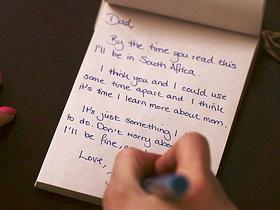 Dad,
By the time you read this
I'll be in South Africa.
I think you and I could use
some time apart and I think
it's time I learn more about mom.
It's just something I
to do. Don't worry about
I'll be fine,
Love,